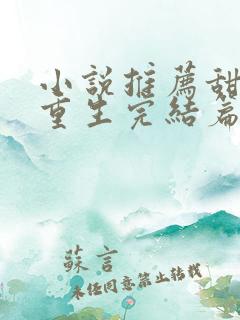 小說推薦甜
重生完結篇
蘇言
未經同意禁止轉載